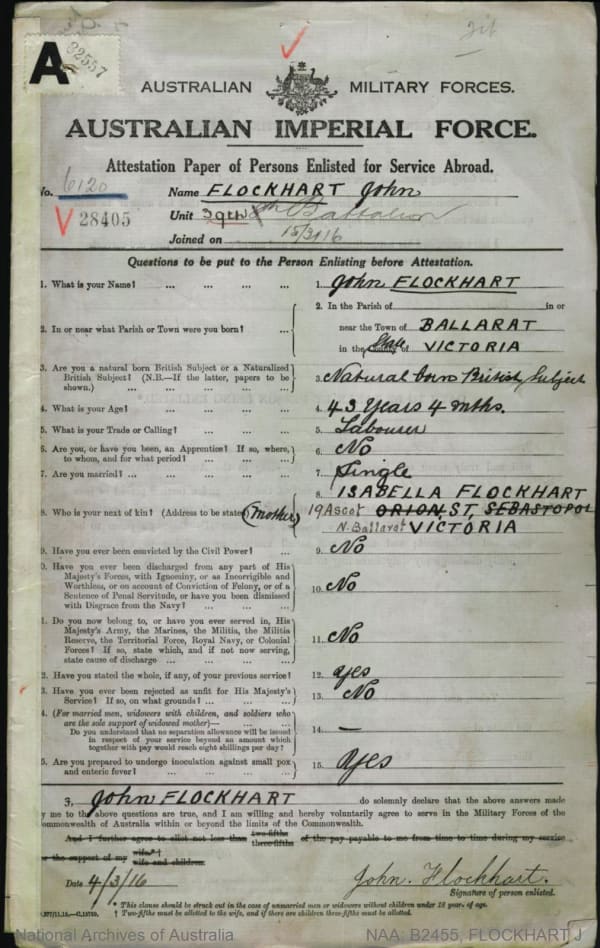 A 32557
AUSTRALIAN MILITARY FORCES.
AUSTRALIAN IMPERIAL FORCE.
Attestation Paper of Persons Enlisted for Service Abroad.
No. 6120 Name FLOCKHART John
28405 Unit 39th 8th Battalion
Joined on 15/3/16
Questions to be put to the Person Enlisting before Attestation.
1. What is your Name? ... ... ... ... 1. John FLOCKHART
2. In the Parish of in or
2. In or near what Parish or Town were you born? ... near the Town of BALLARAT
in the State of VICTORIA
3. Are you a natural born British Subject or a Naturalized
British Subject? (N.B.—If the latter, papers to be 3. Natural born British Subject
shown.) ... ... ... ...
4. What is your Age? ... ... ... ... 4. 43 Years 4 mths.
5. What is your Trade or Calling? ... ... ... 5. Labourer
6. Are you, or have you been, an Apprentice? If so, where, 6. No
to whom, and for what period? ... ... ...
7. Are you married? ... ... ... ... 7. Single
8. ISABELLA FLOCKHART
8. Who is your next of kin? (Address to be stated) (mother) 19 Ascot ORION ST, SEBASTOPOL
N. Ballarat VICTORIA
9. Have you ever been convicted by the Civil Power? ... 9. No
0. Have you ever been discharged from any part of His
Majesty's Forces, with Ignominy, or as Incorrigible and
Worthless, or on account of Conviction of Felony, or of a 10. No
Sentence of Penal Servitude, or have you been dismissed
with Disgrace from the Navy? ... ... ...
1. Do you now belong to, or have you ever served in, His
Majesty's Army, the Marines, the Militia, the Militia
Reserve, the Territorial Force, Royal Navy, or Colonial 11. No
Forces? If so, state which, and if not now serving,
state cause of discharge ... ... ... ...
2. Have you stated the whole, if any, of your previous service? 12. yes
3. Have you ever been rejected as unfit for His Majesty's 13. No
Service? If so, on what grounds? ... ... ...
4. (For married men, widowers with children, and soldiers who
are the sole support of widowed mother)—
Do you understand that no separation allowance will be issued 14. —
in respect of your service beyond an amount which
together with pay would reach eight shillings per day?
5. Are you prepared to undergo inoculation against small pox 15. yes
and enteric fever? ... ... ... ...
I, John FLOCKHART do solemnly declare that the above answers made
by me to the above questions are true, and I am willing and hereby voluntarily agree to serve in the Military Forces of the
Commonwealth of Australia within or beyond the limits of the Commonwealth.
And I further agree to allot not less than two-fifths three-fifths of the pay payable to me from time to time during my service
the support of my wife* wife and children.
Date 4/3/16 John. Flockhart.
Signature of person enlisted.
* This clause should be struck out in the case of unmarried men or widowers without children under 18 year. of age.
† Two-fifths must be allotted to the wife, and if there are children three-fifths must be allotted.
National Archives of Australia NAA: B2455, FLOCKHART J